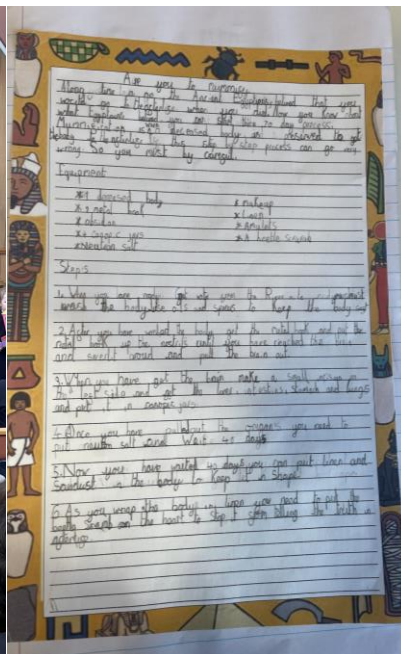 Are you to mummise
Along time ago the Ancient Egyptians belived that you
would go to Afterlife when you died. Now you know about
what Egyptians belived you can start this 70 day process.
Mummification is when deceased body is preserved to get
the body to the afterlife. In this step by step process can go very
wrong so you must be carefull.
Equipment
*1 deceased body
* makeup
*1 metal hook
* Linen
* obsidian
* Amulets
*4 canopic jars
* A beetle scarab
*natron salt
Steps
1. When you are ready, get into your the
wash the body use oils and spices to keep the body
2. After you have washed the body, get the metal hook and put the
metal hook up the nostrils until you have reached the brain
and swirl it around and pull the brain out.
3. When you have got the brain make a small in
the left side and get the liver, intestines, stomach and lungs
and put it in canopic jars.
4. Once you have pulled out the organs you need to
put natron salt and wait 40 days
5. Now you have waited 40 days you can put linen and
sawdust in the body to keep it in shape.
6. As you wrap the body in linen you need to put the
scarab on the heart to stop it from telling the truth in
afterlife.